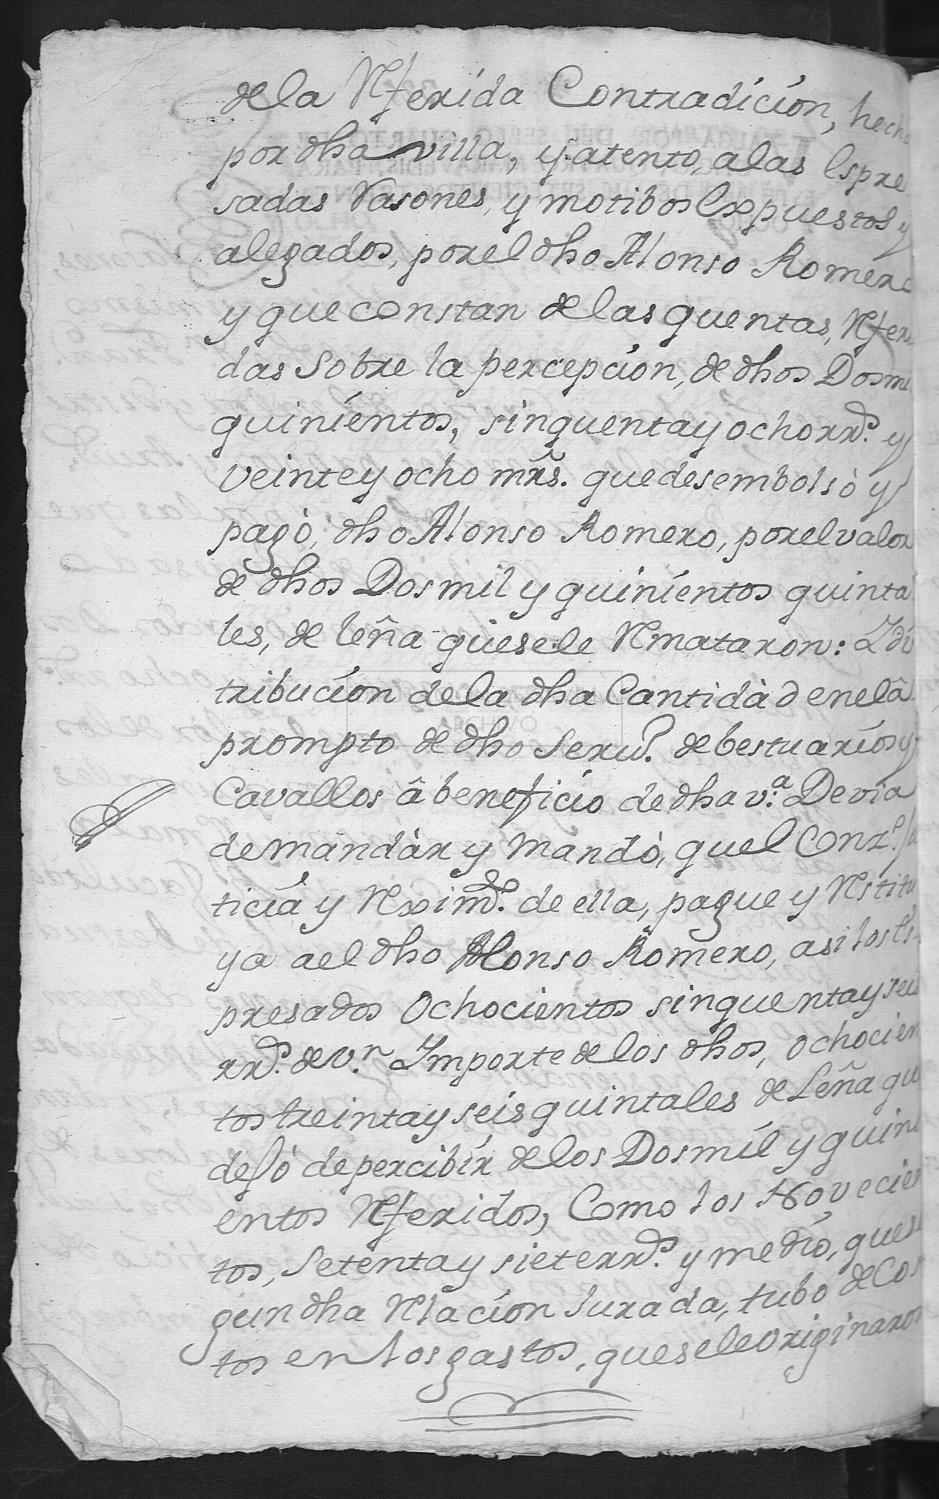 dela Rferida Contradición, hech
por dha villa, y atento, alas Espre
sadas Rasones, y motibos Expuestos y
alegados, por el dho Alonso Romero
y que constan de las quentas, Rferi
das Sobre la percepción, de dhos Dosmi
quinientos, sinquenta y ocho rrs. y
veinte y ocho mrs. que desembolsò y
pagò, dho Alonso Romero, por el valor
de dhos Dosmil y quinientos quinta
les, de leña que se le Rmataron: I dis
tribución de la dha Cantidàd en el â
prompto de dho Serv.o de bestuarios y
Cavallos â beneficio de dha v.a Devia
de mandàr y mandò, que el Conz.o Ju
ticia y Rximto. de ella, pague y Rstitu
ya a el dho Alonso Romero, asi los Es
presados Ochocientos sinquenta y seis
rrs. de v.n Importe de los dhos, ochocien
tos treinta y seis quintales de Leña qu
dejó de percibir de los Dosmil y quini
entos Rferidos, Como los Novecien
tos, Setenta y siete rrs. y medio, que se
gun dha Rlacion Jurada, tubo de Cos
tos en los gastos, que se le originaron
ARCHIVO